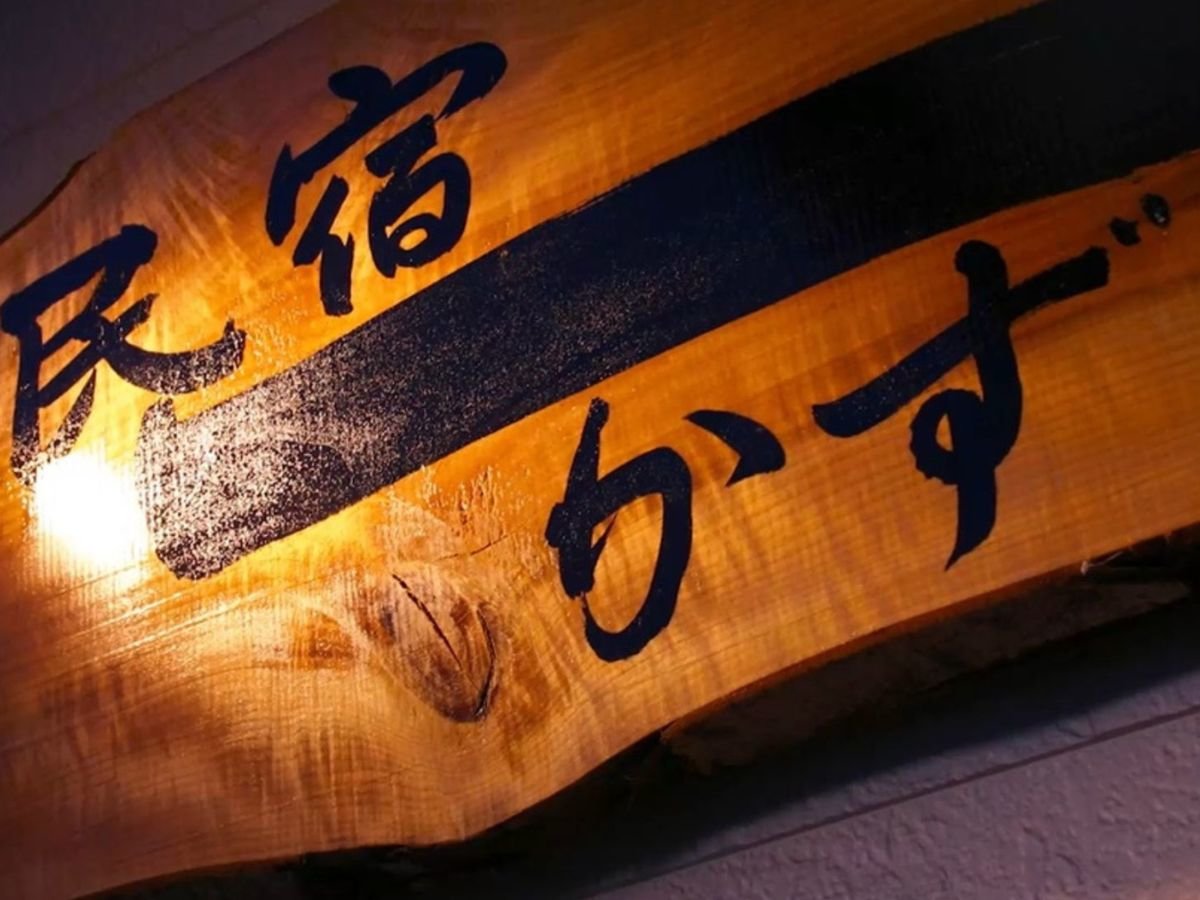 民宿
かず